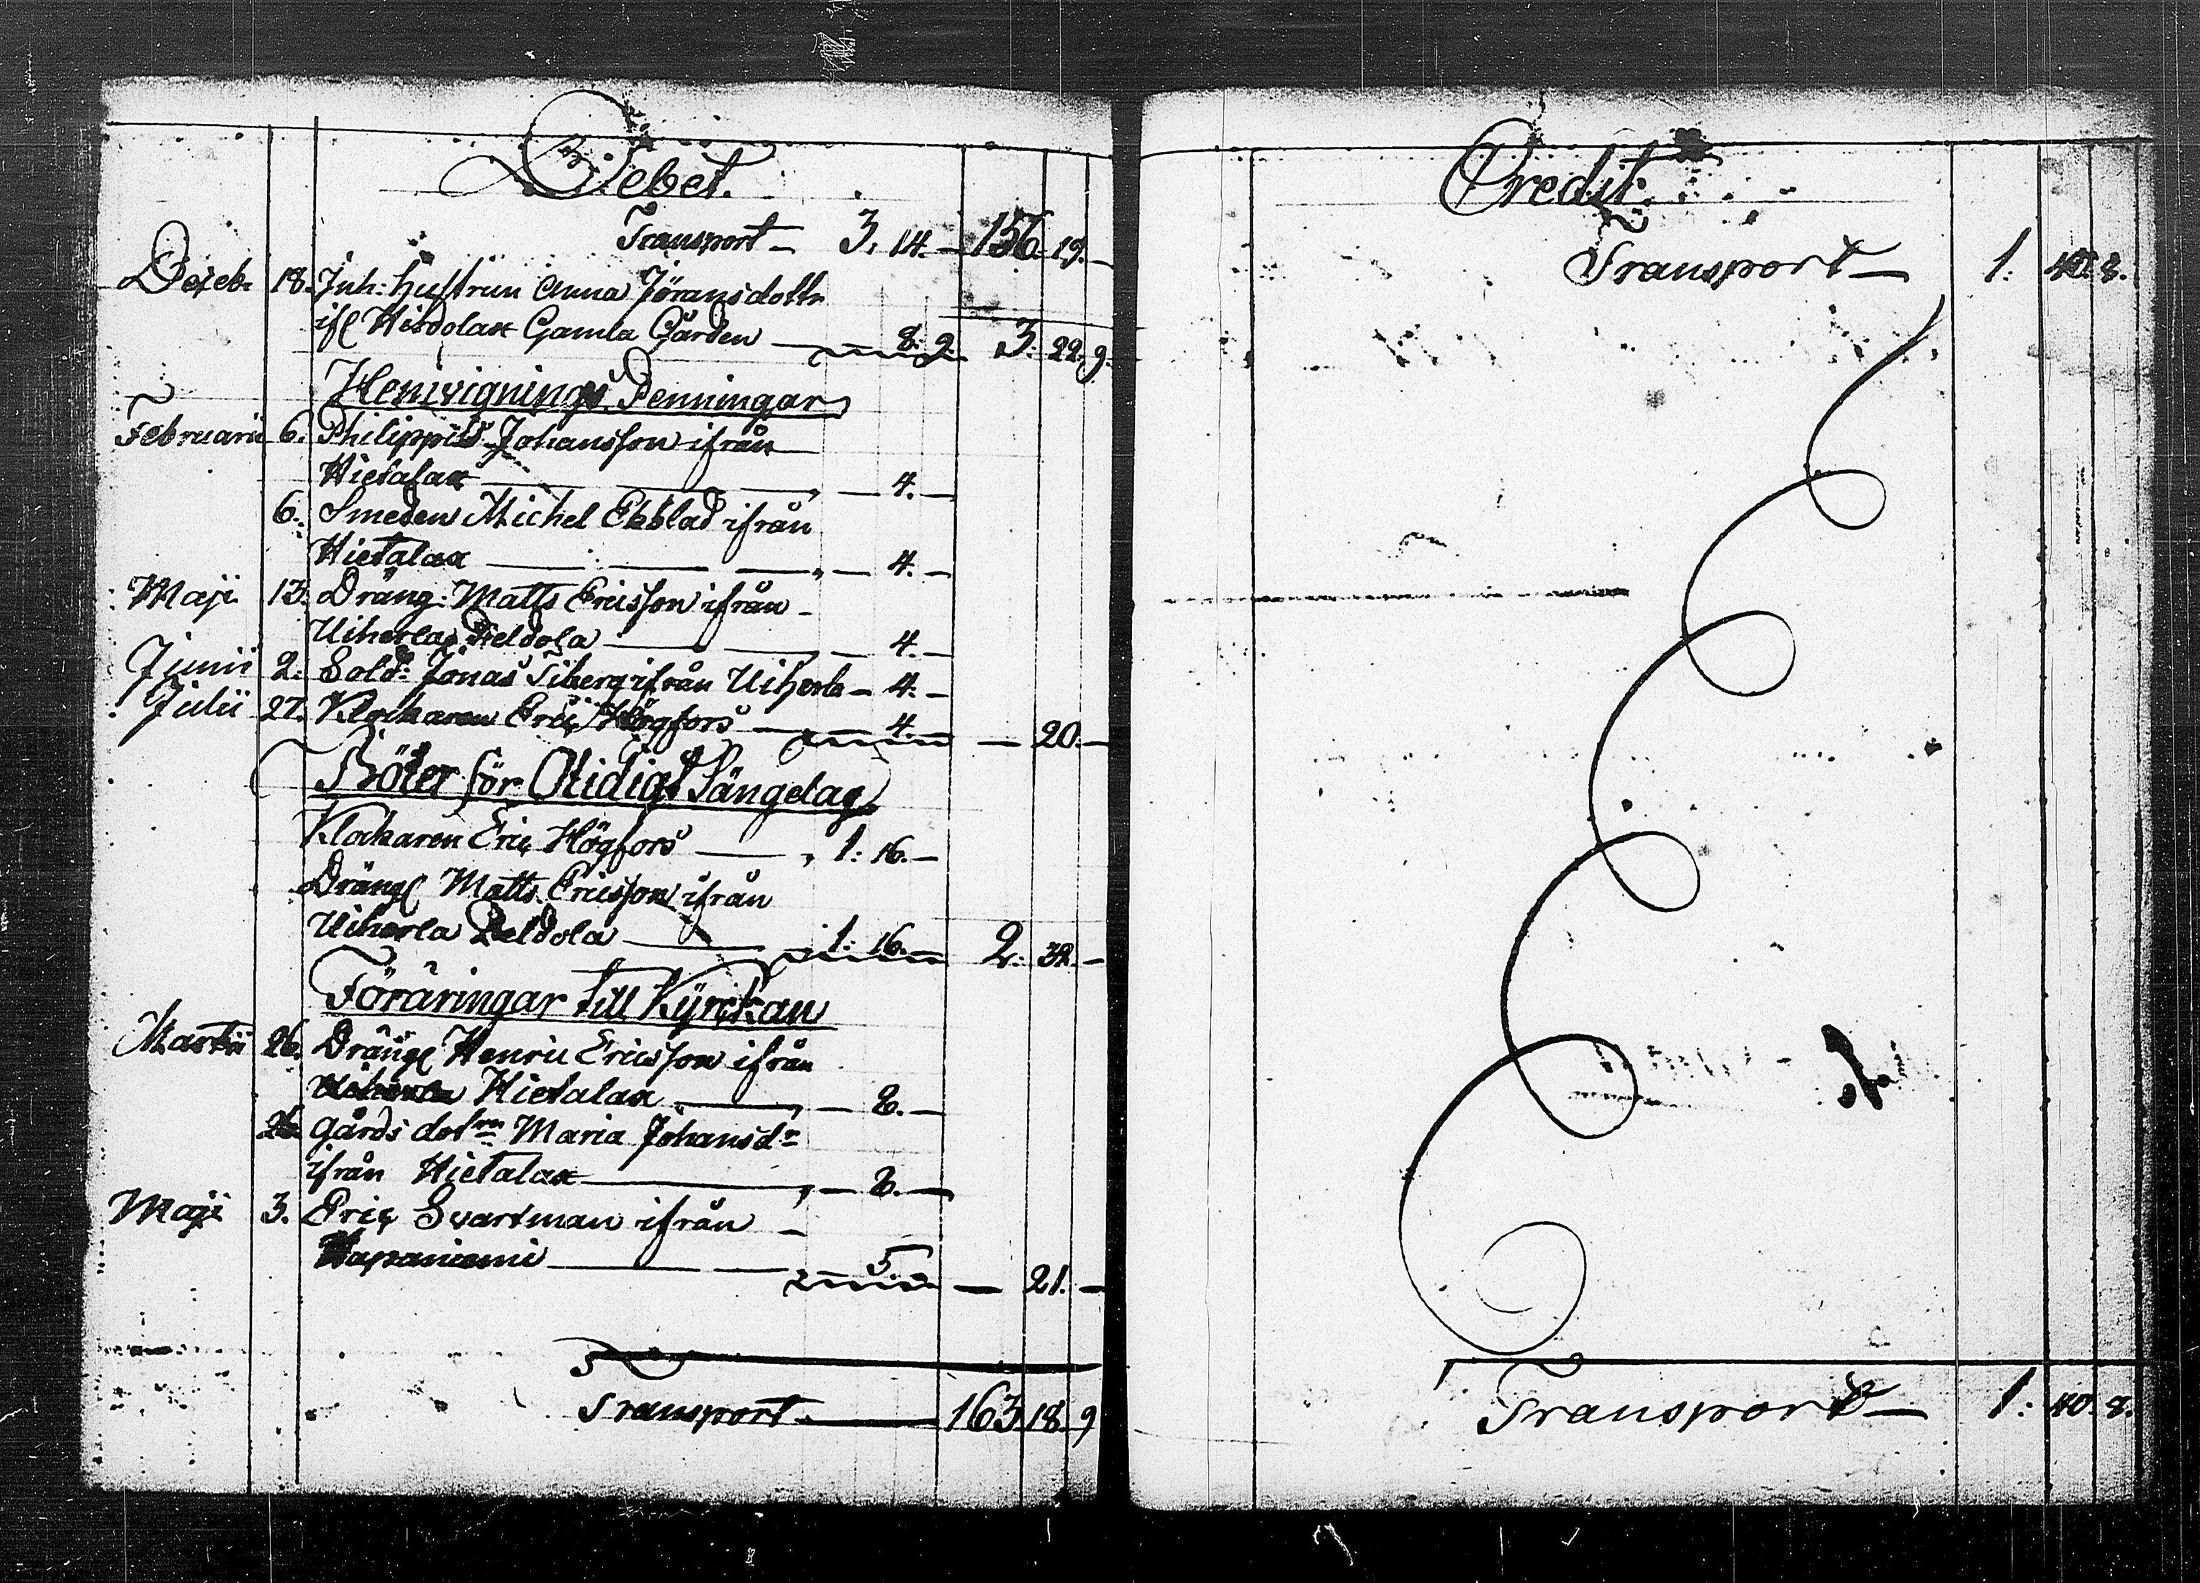 Debet.
Transport – 3. 14. – 156. 19. –
Decebr 18. Inh: hustrun Anna Jöransdottr
Gamla Gården — 8: 9. 3: 22. 9.
Hemvignings Penningar
Februarii 6. Philippus Johansson ifrån
Hietalax — „ — 4. —
6. Smeden Michel Ekblad ifrån
Hietalax — „ — 4. —
Maji 13. Dräng: Matts Ericsson ifrån
Uiherla Peldola — 4. —
Junii 2. Sold: Jonas Tiberg ifrån Uiherla – 4. –
Julii 27. Klockaren Eric Högfors — 4. — — 20. —
Böter för Otidigt Sängelag
Klockaren Eric Högfors — „ 1: 16. —
Dräng Matts Ericsson ifrån
Uiherla Peldola — 1: 16. — 2: 32. —
Föräringar till Kyrckan
Martii 26. Dräng Henric Ericsson ifrån
Hietalax — „ — 8. —
26. Gårds dotren Maria Johansdr
ifrån Hietalax — „ — 8. —
Maji 3. Eric Svartman ifrån –
Hapaniemi — 5. — — 21. —
Transport — 163. 18. 9
Credit.
Transport — 1: 40. 8.
Transport — 1: 40. 8.